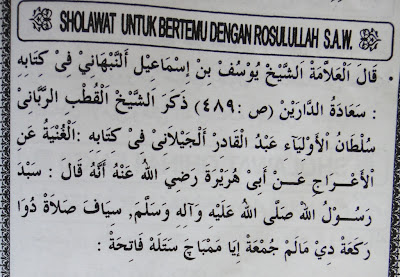 SHOLAWAT UNTUK BERTEMU DENGAN ROSULULLAH S.A.W.
قَالَ الْعَلاَّمَةُ الشَّيْخُ يُوْسُفُ بْنُ إِسْمَاعِيْلَ اَلنَّبْهَانِي فِىْ كِتَابِهِ
: سَعَادَةُ الدَّارَيْنْ (ص :٤٨٩) ذَكَرَ الشَّيْخُ الْقُطْبِ الرَّبَّانِي
سُلْطَانُ الْأَوْلِيَاءِ عَبْدُ الْقَادِرِ الْجَيْلاَنِي فِىْ كِتَابِهِ :الْغُنْيَةُ عَنِ
الْأَعْرَاجِ عَنْ أَبِىْ هُرَيْرَةَ رَضِيَ اللهُ عَنْهُ أَنَّهُ قَالَ : سَبْدَ
رَسُوْلُ اللهِ صَلَّى اللهُ عَلَيْهِ وَآلِهِ وَسَلَّمَ, سِيَاف صَلاَةْ دُوَا
رَكَعَةْ دِيْ مَالَمْ جُمْعَةْ إِيَا مَمْبَاچ سَتَلَهْ فَاتِحَةْ :